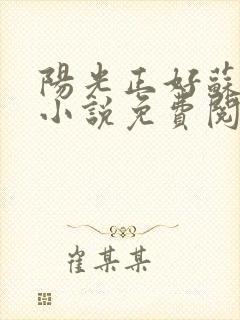 陽光正好蘇
小說免費閱
崔某某